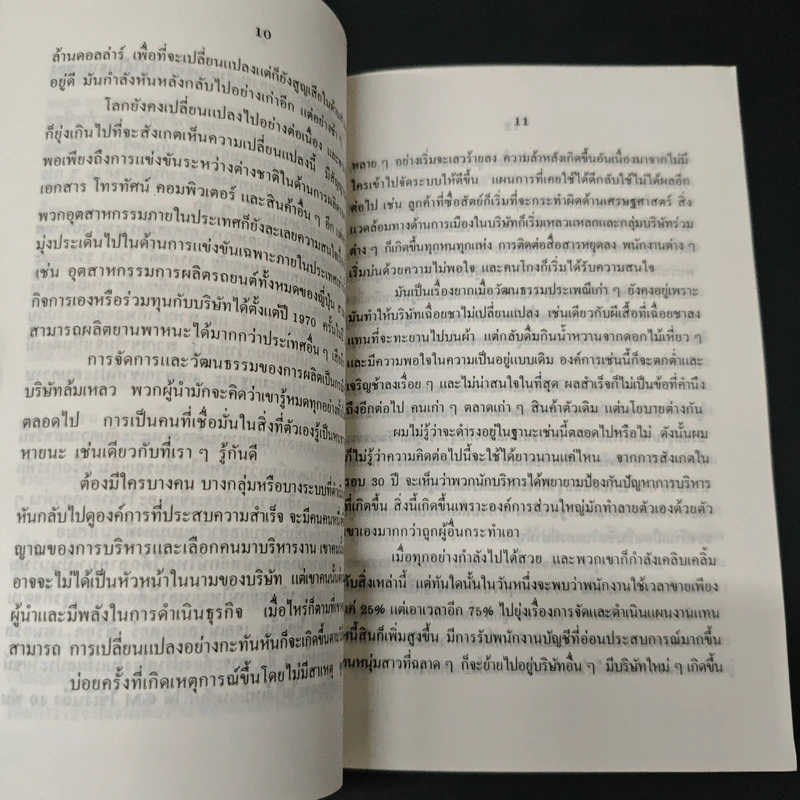 10
ล้านดอลล่าร์ เพื่อที่จะเปลี่ยนแปลงแต่ก็ยังสูญเสียใน
อยู่ดี มันกำลังหันหลังกลับไปอย่างเก่าอีก แต่อย่างช้า ๆ
โลกยังคงเปลี่ยนแปลงไปอย่างต่อเนื่อง และ
ก็ยุ่งเกินไปที่จะสังเกตเห็นความเปลี่ยนแปลงนี้
พอเพียงถึงการแข่งขันระหว่างต่างชาติในด้านการผลิต
เอกสาร โทรทัศน์ คอมพิวเตอร์ และสินค้าอื่น ๆ อีก
พวกอุตสาหกรรมภายในประเทศก็ยังละเลยความสนใจ
มุ่งประเด็นไปในด้านการแข่งขันเฉพาะภายในประเทศ
เช่น อุตสาหกรรมการผลิตรถยนต์ทั้งหมดของญี่ปุ่น
กิจการเองหรือร่วมทุนกับบริษัทได้ตั้งแต่ปี 1970 ครั้น
สามารถผลิตยานพาหนะได้มากกว่าประเทศอื่น ๆ
การจัดการและวัฒนธรรมของการผลิตเป็น
บริษัทล้มเหลว พวกผู้นำมักจะคิดว่าเขารู้หมดทุกอย่าง
ตลอดไป การเป็นคนที่เชื่อมั่นในสิ่งที่ตัวเองรู้เป็น
หายนะ เช่นเดียวกับที่เรา ๆ รู้กันดี
ต้องมีใครบางคน บางกลุ่มหรือบางระบบที่
หันกลับไปดูองค์การที่ประสบความสำเร็จ จะมีคน
ญาณของการบริหารและเลือกคนมาบริหารงาน เขาคน
อาจจะไม่ได้เป็นหัวหน้าในนามของบริษัท แต่เขาคนนั้น
ผู้นำและมีพลังในการดำเนินธุรกิจ เมื่อไหร่ก็ตามที่
สามารถ การเปลี่ยนแปลงอย่างกะทันหันก็จะเกิดขึ้น
บ่อยครั้งที่เกิดเหตุการณ์ขึ้นโดยไม่มีสาเหตุ
11
หลาย ๆ อย่างเริ่มจะเลวร้ายลง ความล้าหลังเกิดขึ้นอันเนื่องมาจากไม่มี
ใครเข้าไปจัดระบบให้ดีขึ้น แผนการที่เคยใช้ได้ดีกลับใช้ไม่ได้ผลอีก
ต่อไป เช่น ลูกค้าที่ซื่อสัตย์ก็เริ่มที่จะกระทำผิดด้านเศรษฐศาสตร์ สิ่ง
แวดล้อมทางด้านการเมืองในบริษัทก็เริ่มเหลวแหลกและกลุ่มบริษัทร่วม
ต่าง ๆ ก็เกิดขึ้นทุกหนทุกแห่ง การติดต่อสื่อสารหยุดลง พนักงานต่าง ๆ
เริ่มบ่นด้วยความไม่พอใจ และคนโกงก็เริ่มได้รับความสนใจ
มันเป็นเรื่องยากเมื่อวัฒนธรรมประเพณีเก่า ๆ ยังคงอยู่เพราะ
มันทำให้บริษัทเฉื่อยชาไม่เปลี่ยนแปลง เช่นเดียวกับผีเสื้อที่เฉื่อยชาลง
แทนที่จะทะยานไปบนฟ้า แต่กลับดื่มกินน้ำหวานจากดอกไม้เหี่ยว ๆ
และมีความพอใจในความเป็นอยู่แบบเดิม องค์การเช่นนี้ก็จะตกต่ำและ
เจริญช้าลงเรื่อย ๆ และไม่น่าสนใจในที่สุด ผลสำเร็จก็ไม่เป็นข้อที่คำนึง
ถึงอีกต่อไป คนเก่า ๆ ตลาดเก่า ๆ สินค้าตัวเดิม แต่นโยบายต่างกัน
ผมไม่รู้ว่าจะดำรงอยู่ในฐานะเช่นนี้ตลอดไปหรือไม่ ดังนั้นผม
ก็ไม่รู้ว่าความคิดต่อไปนี้จะใช้ได้ยาวนานแค่ไหน จากการสังเกตใน
รอบ 30 ปี จะเห็นว่าพวกนักบริหารได้พยายามป้องกันปัญหาการบริหาร
ที่เกิดขึ้น สิ่งนี้เกิดขึ้นเพราะองค์การส่วนใหญ่มักทำลายตัวเองด้วยตัว
เขาเองมากกว่าถูกผู้อื่นกระทำเอา
เมื่อทุกอย่างกำลังไปได้สวย และพวกเขาก็กำลังเคลิบเคลิ้ม
กับสิ่งเหล่านี้ แต่ทันใดนั้นในวันหนึ่งจะพบว่าพนักงานใช้เวลาขายเพียง
แค่ 25% แต่เอาเวลาอีก 75% ไปยุ่งเรื่องการจัดและดำเนินแผนงานแทน
หนี้สินก็เพิ่มสูงขึ้น มีการรับพนักงานบัญชีที่อ่อนประสบการณ์มากขึ้น
คนหนุ่มสาวที่ฉลาด ๆ ก็จะย้ายไปอยู่บริษัทอื่น ๆ มีบริษัทใหม่ ๆ เกิดขึ้น